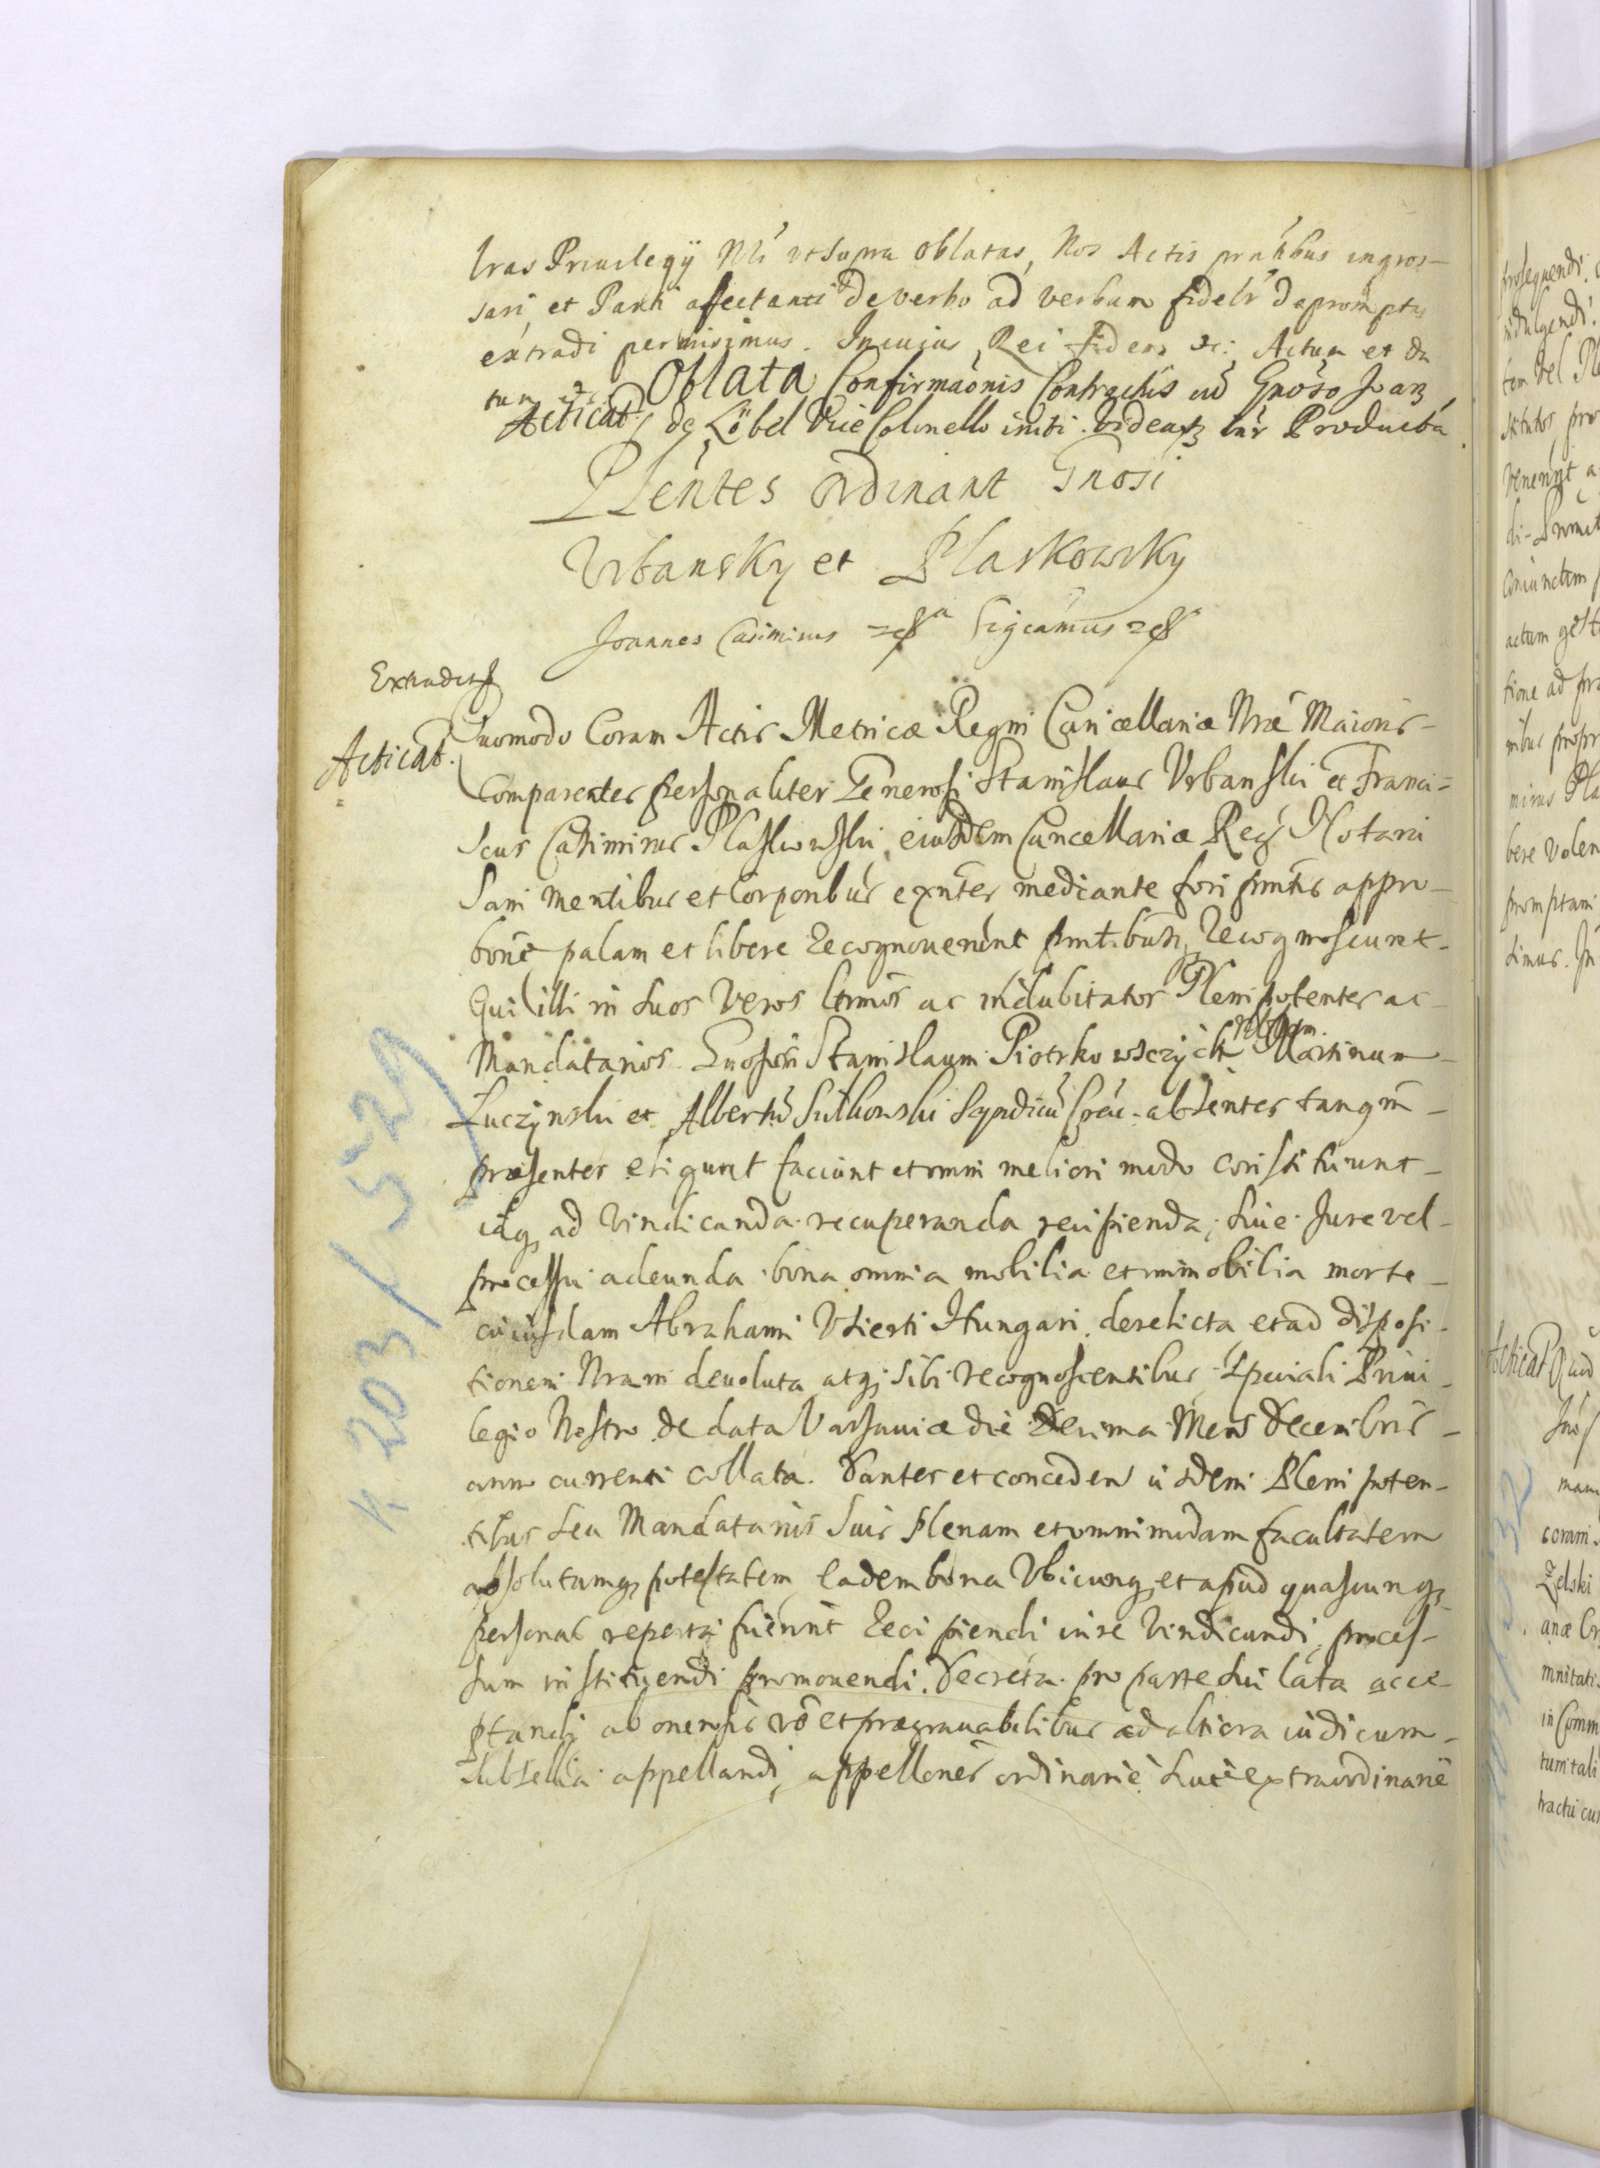 lras Priuilegÿ Nri vt supra oblatas, Nos Actis prntibus ingros-
sari et Parti affectanti de verbo ad verbum fidelr depromptu
extradi permisimus. In cuius Rei fidem &c: Actum et da
tum &c.
Acticat. Oblata Confirmaonis Contractus cu Gnoso Joan
de Löbel Vice Colonello initi. Videat inr Producta
Plentes ordinant Gnosi
Urbansky et Plaskowsky
Joannes Casimirus Sigeamus
Extraditq
Acticat.
Quomodo Coram Actis Metricæ Regni Cancellariæ Nræ Maioris-
Comparentes personaliter Generosi Stanislaus Vrbanski et Franci=
scus Casimirus Plaskowski, eiusdem Cancellariæ Reg. Notarii
Sani mentibus et Corporibus exntes mediante fori sui appro-
bone palam et libere recognouerunt prntibusq recognoscunt-
Quia illi in suos veros ltimos ac indubitatos Plenipotentes ac-
Mandatarios Gnosos Stanislaum Piotrkowczyck Nblm. Martinum-
Luczÿnski et Albertu Sulkowski Syndicu Crac. absentes tanqm-
præsentes eligunt faciunt et omni meliori modo constituunt-
idq ad vindicanda recuperanda recipienda, siue Jure vel-
processu adeunda bona omnia mobilia et immobilia morte-
cuiusdam Abrahami Vsierti Hungari derelicta et ad disposi-
tionem Nram deuoluta atq sibi recognoscentibus speciali Priui-
legio Nostro de data Varsauiæ die Decima Mens Decembris-
anni currenti collata. Dantes et conceden iisdem Plenipoten-
tibus seu Mandatariis suis plenam et omnimodam facultatem
absolutamq potestatem eadem bona Vbicunq et apud quascunq
personas reperta fuerint recipiendi iure vindicandi, proces-
sum instituendi promouendi. Decreta pro parte sui lata acce-
ptandi ab onerosis vo et prægrauabilibus ad altiora iudicium-
subsellia appellandi, appellones ordinarie siue extraordinarie
K 203 / 529